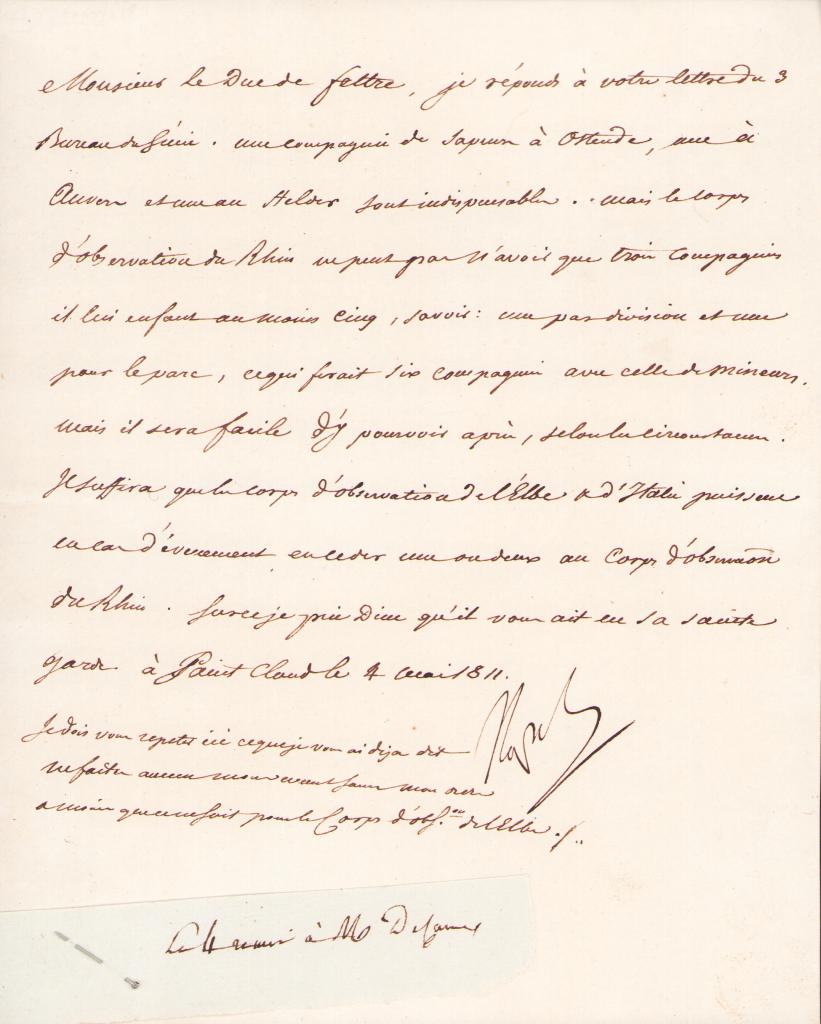 Monsieur le Duc de feltre, je réponds à votre lettre du 3
Bureau du Génie. une compagnie de Sapeurs à Ostende, une à
Anvers et une au Helder sont indispensables. . mais le corps
d'observation du Rhin ne peut pas n'avoir que trois Compagnies
il lui en faut au moins Cinq, savoir: une par division et une
pour le parc, ce qui ferait Six compagnies avec celle de Mineurs.
Mais il sera facile d'y pourvoir après, selon les circonstances.
Il suffira que les corps d'observation de l'Elbe & d'Italie puissent
en cas d'évenement en ceder une ou deux au Corps d'observation
du Rhin. Sur ce je prie Dieu qu'il vous ait en sa sainte
garde à Saint Cloud le 4 mai 1811.
Je dois vous repeter ici ce que je vous ai dija dit
ne faites aucun mouvement sans mon ordre
a moins que ce ne soit pour le Corps d'obs.on de l'Elbe ./.
Nap
Le 4 remis à Mr